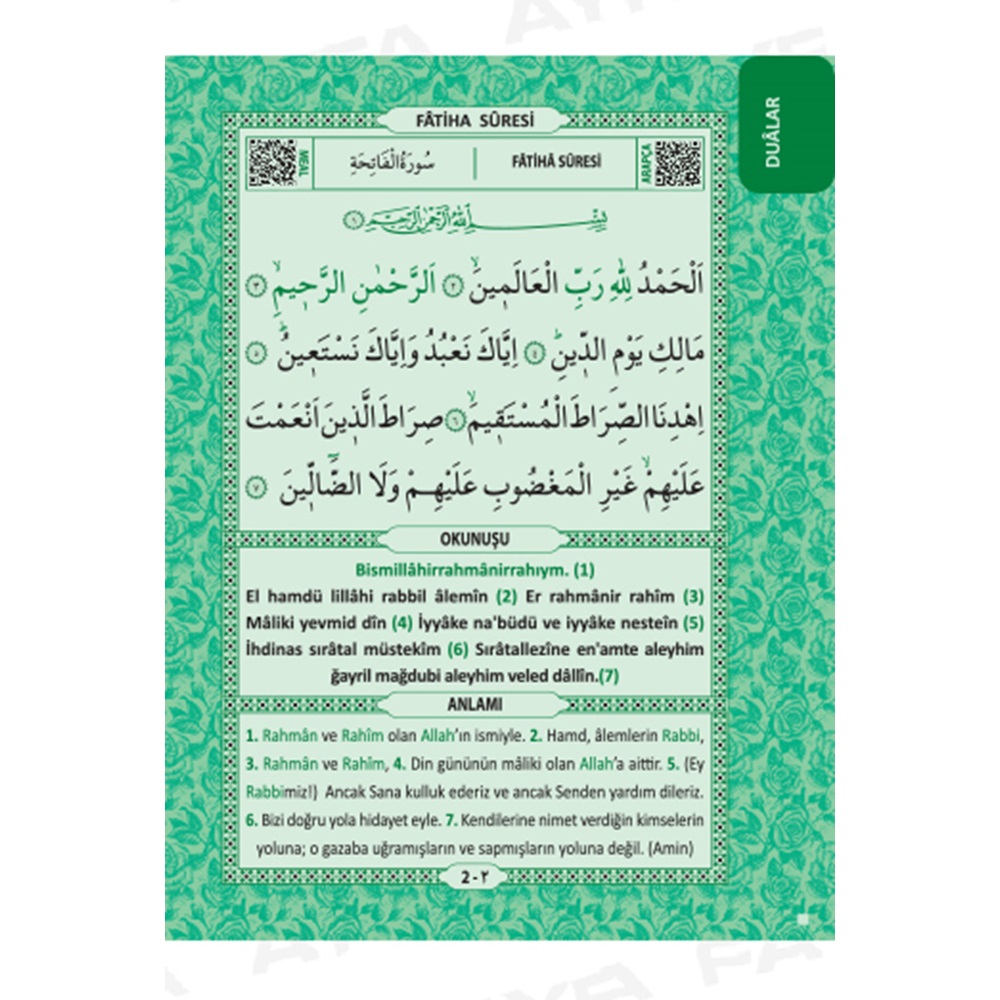 DUÂLAR
FÂTİHA SÛRESİ
MEAL
سُورَةُ الْفَاتِحَةِ
FÂTİHÂ SÛRESİ
ARAPÇA
بِسْمِ اللّٰهِ الرَّحْمٰنِ الرَّحِيمِ ﴿١﴾
اَلْحَمْدُ لِلّٰهِ رَبِّ الْعَالَمٖينَۙ ﴿٢﴾ اَلرَّحْمٰنِ الرَّحٖيمِۙ ﴿٣﴾
مَالِكِ يَوْمِ الدّٖينِؕ ﴿٤﴾ اِيَّاكَ نَعْبُدُ وَاِيَّاكَ نَسْتَعٖينُؕ ﴿٥﴾
اِهْدِنَا الصِّرَاطَ الْمُسْتَقٖيمَۙ ﴿٦﴾ صِرَاطَ الَّذٖينَ اَنْعَمْتَ
عَلَيْهِمْۙ غَيْرِ الْمَغْضُوبِ عَلَيْهِمْ وَلَا الضَّٓالّٖينَ ﴿٧﴾
OKUNUŞU
Bismillâhirrahmânirrahıym. (1)
El hamdü lillâhi rabbil âlemîn (2) Er rahmânir rahîm (3)
Mâliki yevmid dîn (4) İyyâke na'büdü ve iyyâke nesteîn (5)
İhdinas sırâtal müstekîm (6) Sırâtallezîne en'amte aleyhim
ğayril mağdubi aleyhim veled dâllîn.(7)
ANLAMI
1. Rahmân ve Rahîm olan Allah'ın ismiyle. 2. Hamd, âlemlerin Rabbi,
3. Rahmân ve Rahîm, 4. Din gününün mâliki olan Allah'a aittir. 5. (Ey
Rabbimiz!) Ancak Sana kulluk ederiz ve ancak Senden yardım dileriz.
6. Bizi doğru yola hidayet eyle. 7. Kendilerine nimet verdiğin kimselerin
yoluna; o gazaba uğramışların ve sapmışların yoluna değil. (Amin)
2 - ٢